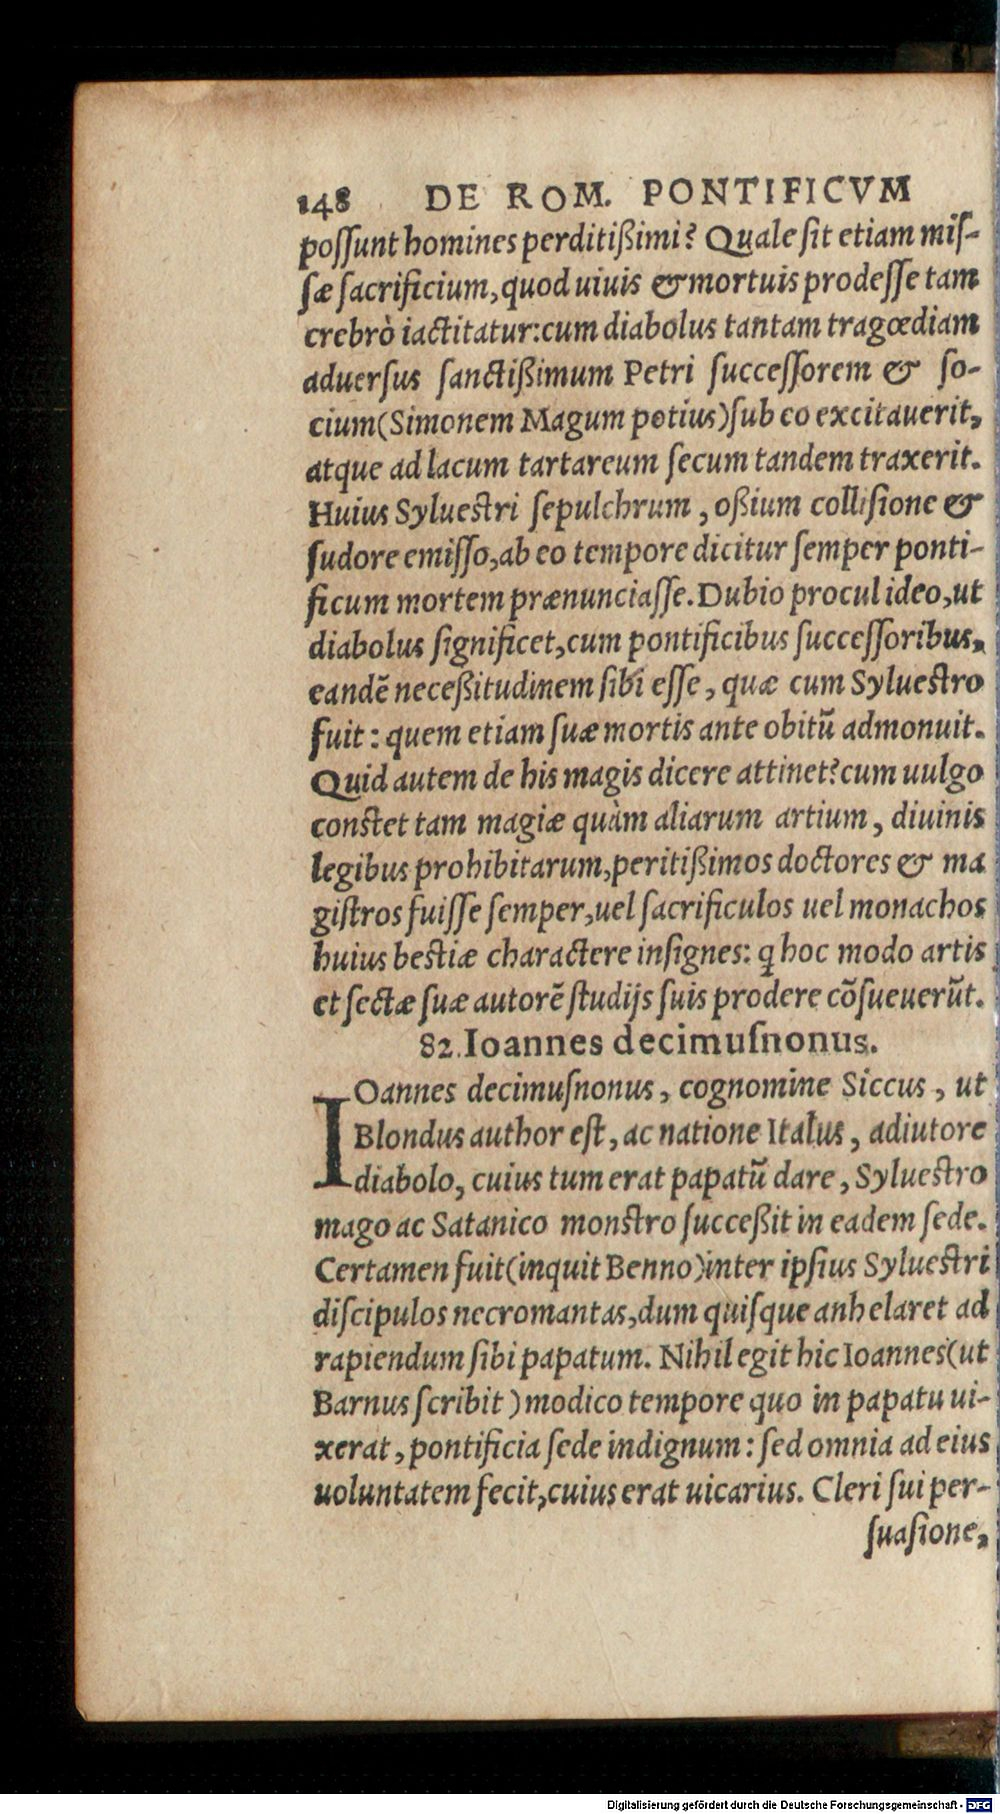 148 DE ROM. PONTIFICVM
poſſunt homines perditißimi? Quale ſit etiam miſ-
ſæ ſacrificium, quod uiuis & mortuis prodeſſe tam
crebrò iactitatur: cum diabolus tantam tragœdiam
aduerſus ſanctißimum Petri ſucceſſorem & ſo-
cium (Simonem Magum potius) ſub eo excitauerit,
atque ad lacum tartareum ſecum tandem traxerit.
Huius Syluestri ſepulchrum, oßium colliſione &
ſudore emiſſo, ab eo tempore dicitur ſemper ponti-
ficum mortem prænunciaſſe. Dubio procul ideo, ut
diabolus ſignificet, cum pontificibus ſucceſſoribus,
eandē neceßitudinem ſibi eſſe, quæ cum Syluestro
fuit: quem etiam ſuæ mortis ante obitū admonuit.
Quid autem de his magis dicere attinet? cum uulgo
constet tam magiæ quàm aliarum artium, diuinis
legibus prohibitarum, peritißimos doctores & ma
giſtros fuiſſe ſemper, uel ſacrificulos uel monachos
huius bestiæ charactere inſignes: q hoc modo artis
et ſectæ ſuæ autorē ſtudijs ſuis prodere cōſueuerūt.
82. Ioannes decimuſnonus.
IOannes decimuſnonus, cognomine Siccus, ut
Blondus author eſt, ac natione Italus, adiutore
diabolo, cuius tum erat papatū dare, Syluestro
mago ac Satanico monstro ſucceßit in eadem ſede.
Certamen fuit (inquit Benno) inter ipſius Syluestri
diſcipulos necromantas, dum quiſque anhelaret ad
rapiendum ſibi papatum. Nihil egit hic Ioannes (ut
Barnus ſcribit) modico tempore quo in papatu ui-
xerat, pontificia ſede indignum: ſed omnia ad eius
uoluntatem fecit, cuius erat uicarius. Cleri ſui per-
ſuaſione,
Digitalisierung gefördert durch die Deutsche Forschungsgemeinschaft - DFG